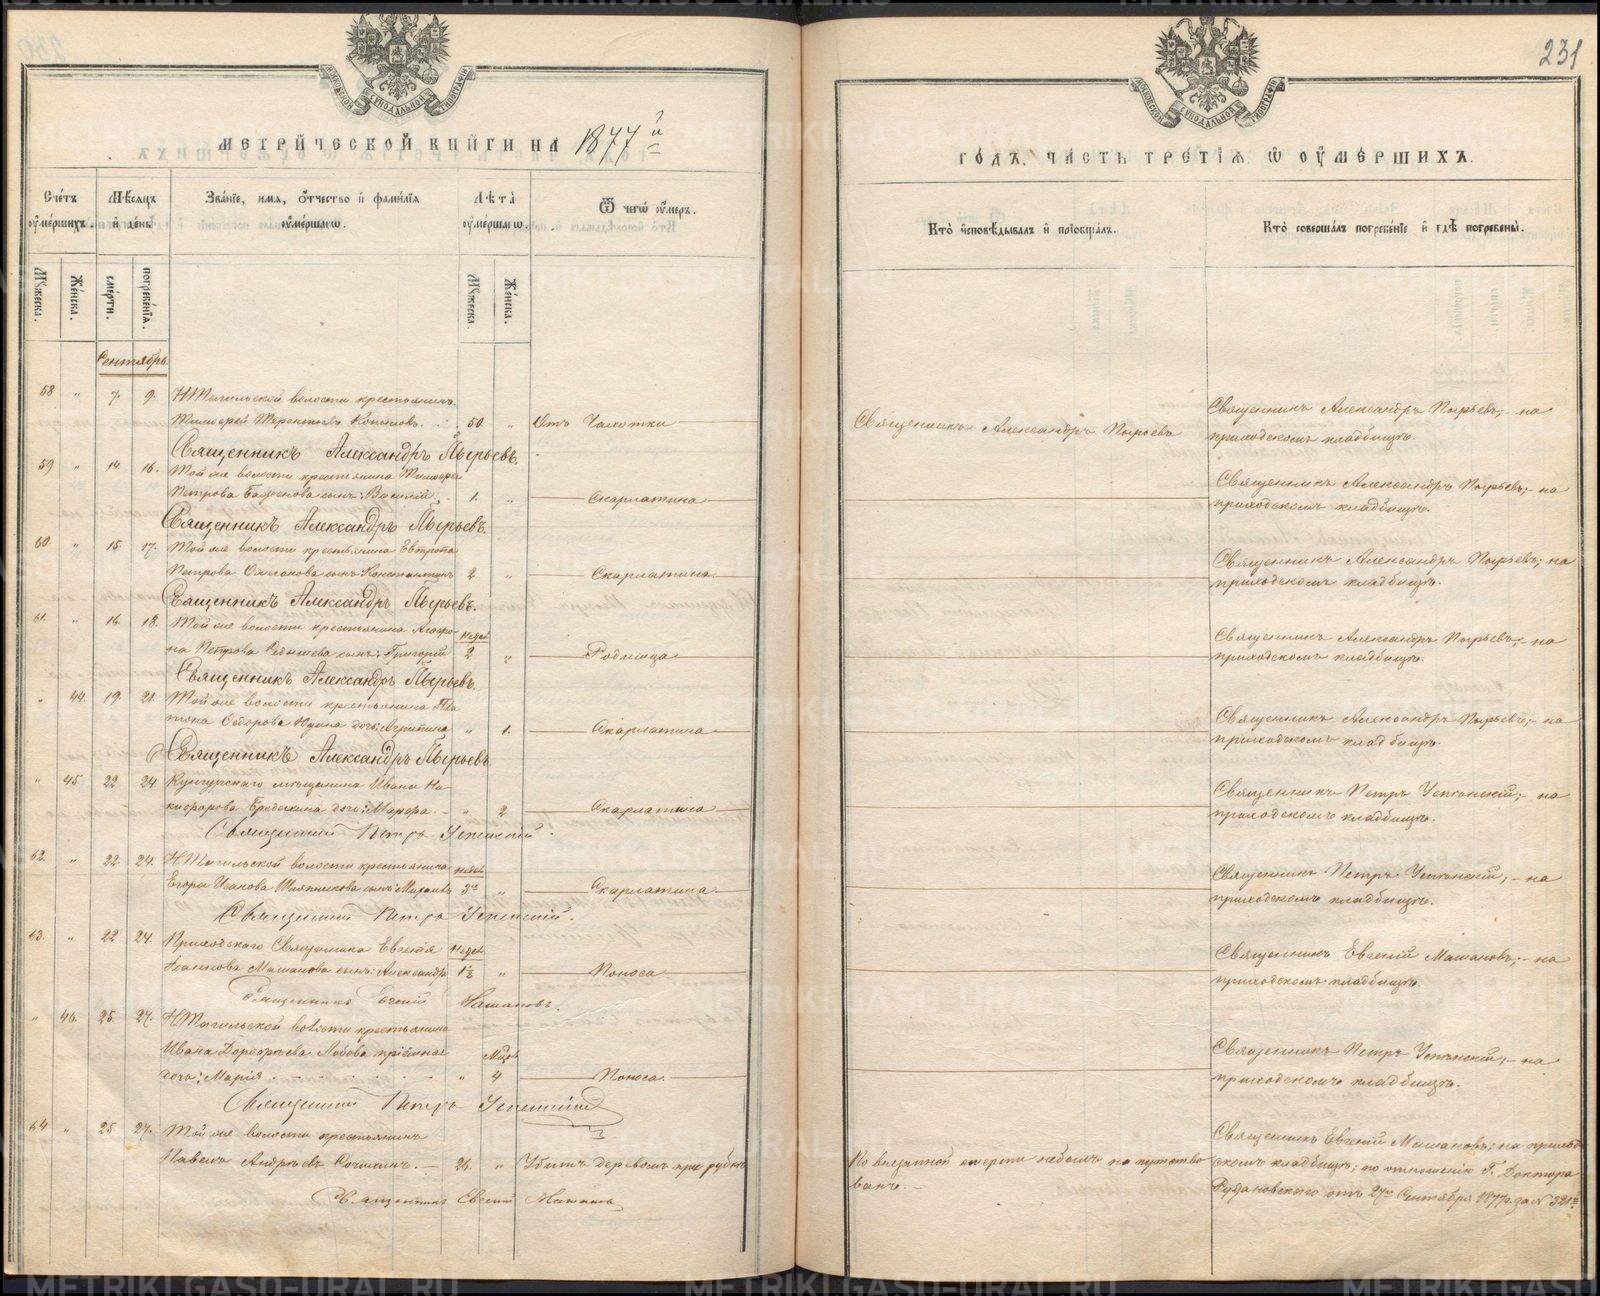 231
МОСКОВСКОЙ СѴНОДАЛЬНОЙ ТИПОГРАФІИ
МЕТРИЧЕСКОЙ КНИГИ НА 1877 й
Счетъ умершихъ.
Мѣсяцъ и день
Званіе, имя, отчество и фамилія умершагѡ.
Лѣта умершагѡ.
Ѿ чегѡ умеръ.
Мужеска. Женска. смерти. погребенія. Мужеска. Женска.
Сентябрь
58 " 7. 9. НТагильской волости крестьянинъ
Тимофей Терентьевъ Копыловъ. 50. " Отъ Чахотки
Священникъ Александръ Пырьевъ.
59 " 14. 16. Той же волости крестьянина Тимофея
Петрова сынъ: Василій. 1. " Скарлатина
Священникъ Александръ Пырьевъ.
60. " 15. 17. Той же волости крестьянина Евтропа
Петрова сынъ: Константинъ 2 " Скарлатина
Священникъ Александръ Пырьевъ.
61. " 16. 18. Той же волости крестьянина Агафо-
на Петрова сынъ: Григорій недел. 2 " Родимца
Священникъ Александръ Пырьевъ.
" 44. 19. 21. Той же волости крестьянина Пла-
тона Ѳедорова дочь: Агрипина " 1. Скарлатина
Священникъ Александръ Пырьевъ
" 45. 22 24 Кунгурскаго мѣщанина Ивана Ни-
кифорова дочь: Марфа. " 2 Скарлатина
Священникъ Петръ Успенскій.
62. " 22 24. НТагильской волости крестьянина
Егора Иванова Шляпникова сынъ: Михаилъ недел. 3 " Скарлатина
Священникъ Петръ Успенскій.
63. " 22 24. Приходскаго Священника Евгенія
Іоаннова Машанова сынъ: Александръ недел. 1½ " Поноса
Священникъ Евгеній Машановъ.
" 46. 25. 27. НТагильской волости крестьянина
Ивана Лобова пріёмная
дочь: Марія " 4 Поноса.
Священникъ Петръ Успенскій
64 " 25 27. Той же волости крестьянинъ
Павелъ Андреевъ 26. " Убитъ деревомъ при рубкѣ
Священникъ Евгеній Машановъ
ГОДЪ, ЧАСТЬ ТРЕТІЯ, Ѡ УМЕРШИХЪ.
Кто исповѣдывалъ и пріобщалъ.
Кто совершалъ погребеніе и гдѣ погребены.
Священникъ Александръ Пырьевъ
Священникъ Александръ Пырьевъ; на
приходскомъ кладбищѣ.
Священникъ Александръ Пырьевъ; на
приходскомъ кладбищѣ.
Священникъ Александръ Пырьевъ; на
приходскомъ кладбищѣ.
Священникъ Александръ Пырьевъ; на
приходскомъ кладбищѣ.
Священникъ Александръ Пырьевъ; на
приходскомъ кладбищѣ.
Священникъ Петръ Успенскій; на
приходскомъ кладбищѣ.
Священникъ Петръ Успенскій; на
приходскомъ кладбищѣ.
Священникъ Евгеній Машановъ; на
приходскомъ кладбищѣ.
Священникъ Петръ Успенскій; на
приходскомъ кладбищѣ.
По внезапной смерти небылъ напутство
ванъ.
Священникъ Евгеній Машановъ; на приход-
скомъ кладбищѣ; по отношенію Г. Доктора
Рудановскаго отъ 27го Сентября 1877 г. за №
METRIKI.GASO-URAL.RU